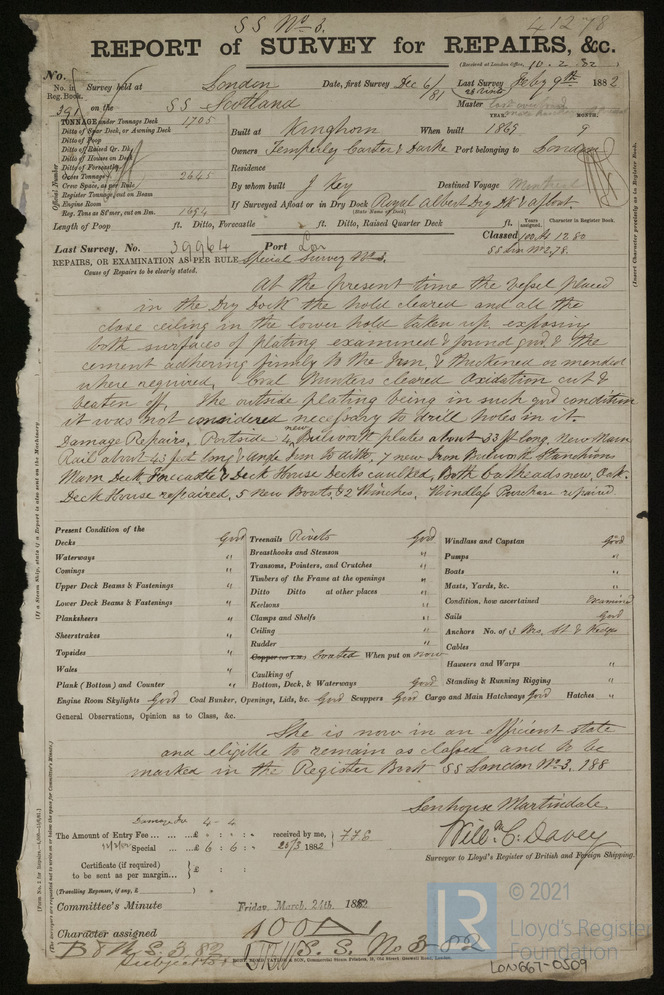 SS No 3. 41278
REPORT of SURVEY for REPAIRS, &c.
(Received at London Office, 10.2.82)
No. in Reg. Book. Survey held at London Date, first Survey Dec 6/81 Last Survey Feby 9th 1882
391 on the SS Scotland Master
TONNAGE under Tonnage Deck 1705
Ditto of Spar Deck, or Awning Deck
Ditto of Poop
Ditto of Raised Qr. Dk.
Ditto of Houses on Deck
Ditto of Forecastle
Gross Tonnage 2645
Crew Space, as per Rule
Register Tonnage, cut on Beam
Engine Room
Reg. Tons as St'mer, cut on Bm. 1694
Official Number
YEAR. MONTH.
Built at Kinghorn When built 1869 9
Owners Temperly Carter & Darke Port belonging to London
Residence
By whom built J Key Destined Voyage Montreal
If Surveyed Afloat or in Dry Dock Royal Albert Dry Dk & afloat
(State Name of Dock)
Length of Poop ft. Ditto, Forecastle ft. Ditto, Raised Quarter Deck ft.
Years assigned. Character in Register Book.
Last Survey, No. 39964 Port Lon Classed 100 A1 12.80
SS Lon No 2.78.
REPAIRS, OR EXAMINATION AS PER RULE Special Survey No 3.
Cause of Repairs to be clearly stated.
At the present time the vessel placed
in the Dry Dock the hold cleared and all the
close ceiling in the lower hold taken up, exposing
both surfaces of plating examined & found good & the
cement adhering firmly to the Iron, & thickened or mended
where required, Coal Bunkers cleared Oxidation cut &
beaten off. The outside plating being in such good condition
it was not considered necessary to drill holes in it.
Damage Repairs. Portside 4 new Bulwork plates about 33 ft long, New Main
Rail about 43 feet long & angle Iron to ditto, 7 new Iron Bulwork Stanchions
Main Deck, Forecastle & Deck House Decks caulked, Both Catheads new, Oak.
Deck House repaired, 5 New Boats, & 2 Winches, Windlass Purchase repaired
Present Condition of the
Decks Good
Waterways "
Comings "
Upper Deck Beams & Fastenings "
Lower Deck Beams & Fastenings "
Planksheers "
Sheerstrakes "
Topsides "
Wales "
Plank (Bottom) and Counter "
Treenails Rivets Good
Breasthooks and Stemson "
Transoms, Pointers, and Crutches "
Timbers of the Frame at the openings "
Ditto Ditto at other places "
Keelsons "
Clamps and Shelfs "
Ceiling "
Rudder "
Copper (or Y.M.) Coated When put on now
Caulking of Bottom, Deck, & Waterways Good
Windlass and Capstan Good
Pumps "
Boats "
Masts, Yards, &c. "
Condition, how ascertained Examined
Sails Good
Anchors No. of 3 Brs. St & Kedge
Cables "
Hawsers and Warps "
Standing & Running Rigging "
Engine Room Skylights Good Coal Bunker, Openings, Lids, &c. Good Scuppers Good Cargo and Main Hatchways Good Hatches "
General Observations, Opinion as to Class, &c.
She is now in an efficient state
and eligible to remain as classed and to be
marked in the Register Book SS London No 3. 188
Senhouse Martindale
Will. C. Davey
Surveyor to Lloyd's Register of British and Foreign Shipping.
Damage Fee 4 - 4
The Amount of Entry Fee ... £ : : received by me, 7.7.6
Special ... £ 6 : 6 : 25/3 1882
Certificate (if required) to be sent as per margin... £ :
(Travelling Expenses, if any, £ )
Committee's Minute Friday March 24th 1882
Character assigned 100 A 1
B & M. S. 3.82 S. S. No 3-82
(Insert Character precisely as in Register Book.
© 2021
Lloyd's Register
Foundation
LON667-0509